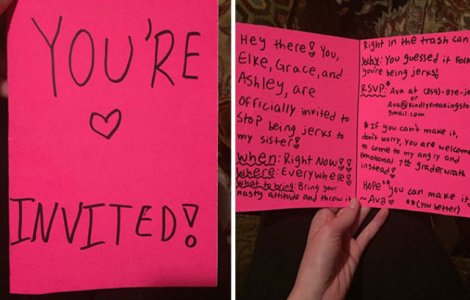 YOU'RE
INVITED!
Hey there! You,
Elke, Grace, and
Ashley, are
Officially invited to
Stop being jerks to
my sister!
When: Right Now!!
Where: Everywhere!
What to bring: Bring your
nasty attitude and throw it
Right in the trash can
Why: You guessed it Folks
you're being jerks!
RSVP: Ava at
or
gmail.com
*If you can't make it,
don't worry, you are welcome
to come to my angry and
emotional 7th grader wrath
instead!
Hope** you can make it,
~Ava
**(You better)